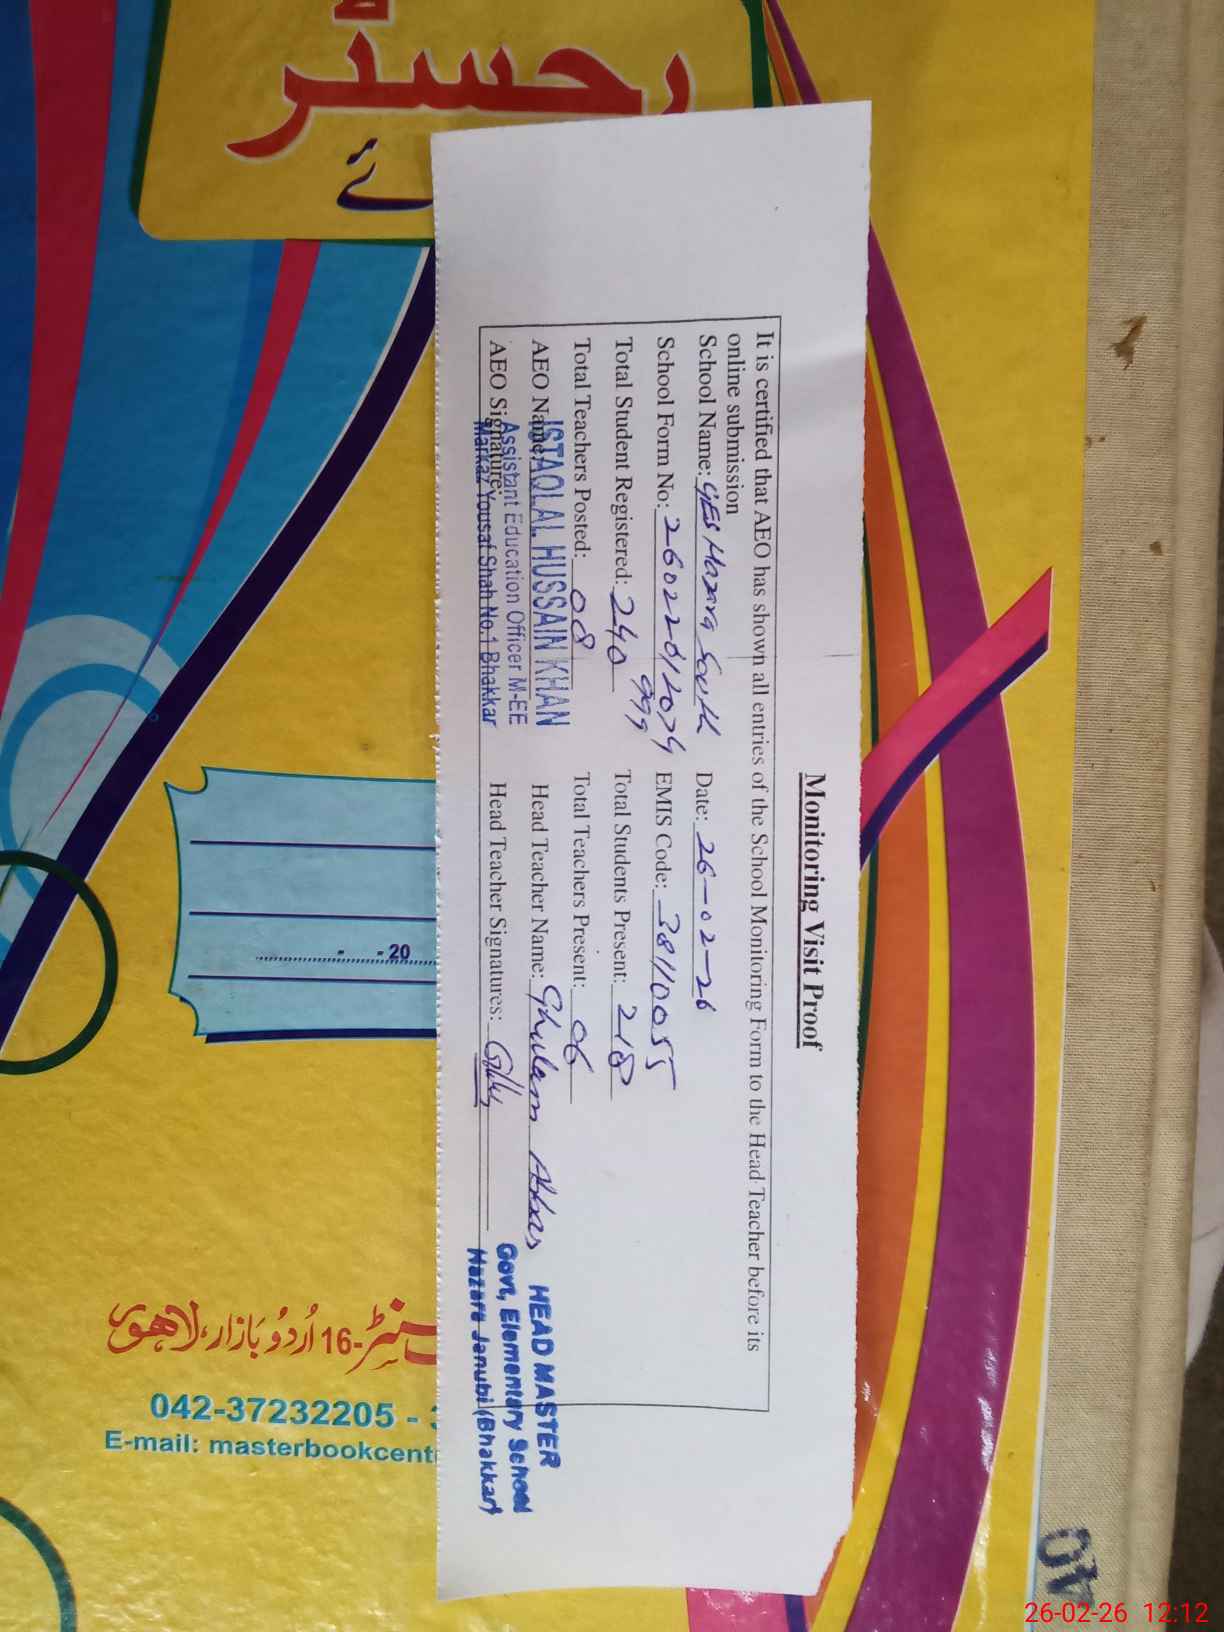 رجسٹر
Monitoring Visit Proof
It is certified that AEO has shown all entries of the School Monitoring Form to the Head Teacher before its
online submission
School Name: GES Hazara South Date: 26-02-26
School Form No: 2602261207499 EMIS Code: 38110055
Total Student Registered: 240 Total Students Present: 218
Total Teachers Posted: 08 Total Teachers Present: 06
AEO Name: ISTAQLAL HUSSAIN KHAN Head Teacher Name: Ghulam Abbas
AEO Signature: Head Teacher Signatures:
Assistant Education Officer M-EE
Markaz Yousaf Shah No.1 Bhakkar
HEAD MASTER
Govt, Elementary School
Hazara Janubi (Bhakkar)
- - 20
16-اُردُو بَازار، لاهور
042-37232205 -
E-mail: masterbookcent
26-02-26 12:12